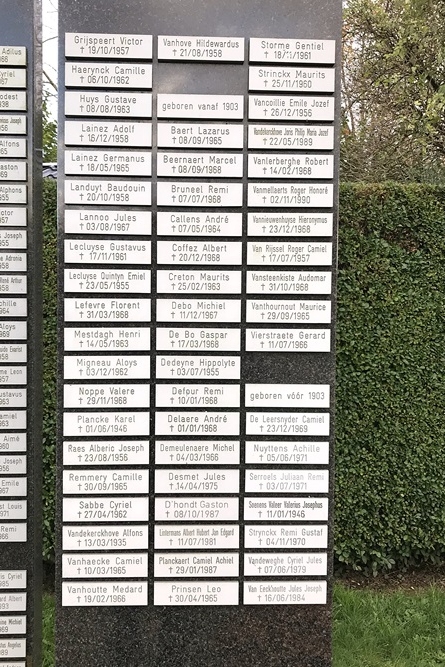 Grijspeert Victor
† 19/10/1957
Haerynck Camille
† 10/02/1962
Huys Gustave
† 08/08/1963
Lainez Adolf
† 16/12/1958
Lainez Germanus
† 18/05/1965
Landuyt Baudouin
† 20/10/1958
Lannoo Jules
† 03/08/1967
Lecluyse Gustavus
† 17/11/1961
Lecluyse Quintyn Emiel
† 23/05/1955
Lefevre Florent
† 31/03/1968
Mestdagh Henri
† 14/05/1963
Migneau Aloys
† 03/12/1962
Noppe Valere
† 29/11/1968
Plancke Karel
† 01/06/1946
Raes Alberic Joseph
† 23/08/1956
Remmery Camille
† 30/09/1965
Sabbe Cyriel
† 27/04/1962
Vandekerckhove Alfons
† 13/03/1935
Vanhaecke Camiel
† 10/03/1965
Vanhoutte Medard
† 19/02/1966
Vanhove Hildewardus
† 21/08/1958
geboren vanaf 1903
Baert Lazarus
† 08/09/1965
Beernaert Marcel
† 08/09/1968
Bruneel Remi
† 07/07/1968
Callens André
† 07/05/1964
Coffez Albert
† 20/12/1968
Creton Maurits
† 25/02/1963
Debo Michiel
† 11/12/1967
De Bo Gaspar
† 17/03/1968
Dedeyne Hippolyte
† 03/07/1955
Defour Remi
† 10/01/1968
Delaere André
† 01/01/1968
Demeulenaere Michel
† 04/03/1966
Desmet Jules
† 14/04/1975
D'hondt Gaston
† 08/10/1987
Lintermans Albert Hubert Jan Edgard
† 11/07/1981
Planckaert Camiel Achiel
† 29/01/1987
Prinsen Leo
† 30/04/1965
Storme Gentiel
† 18/11/1961
Strinckx Maurits
† 25/11/1960
Vancoillie Emile Jozef
† 26/12/1956
Vandekerckhove Joris Philip Maria Jozef
† 22/05/1989
Vanlerberghe Robert
† 14/02/1968
Vanmellaerts Roger Honoré
† 02/11/1990
Vannieuwenhuyse Hieronymus
† 23/12/1968
Van Rijssel Roger Camiel
† 17/07/1957
Vansteenkiste Audomar
† 31/10/1968
Vanthournout Maurice
† 29/09/1965
Vierstraete Gerard
† 11/07/1966
geboren vóór 1903
De Leersnyder Camiel
† 23/12/1969
Nuyttens Achille
† 05/06/1971
Serroels Juliaan Remi
† 03/07/1971
Soenens Valeer Valerius Josephus
† 11/01/1946
Strynckx Remi Gustaf
† 04/11/1970
Vandeweghe Cyriel Jules
† 07/06/1979
Van Eeckhoutte Jules Joseph
† 16/06/1984